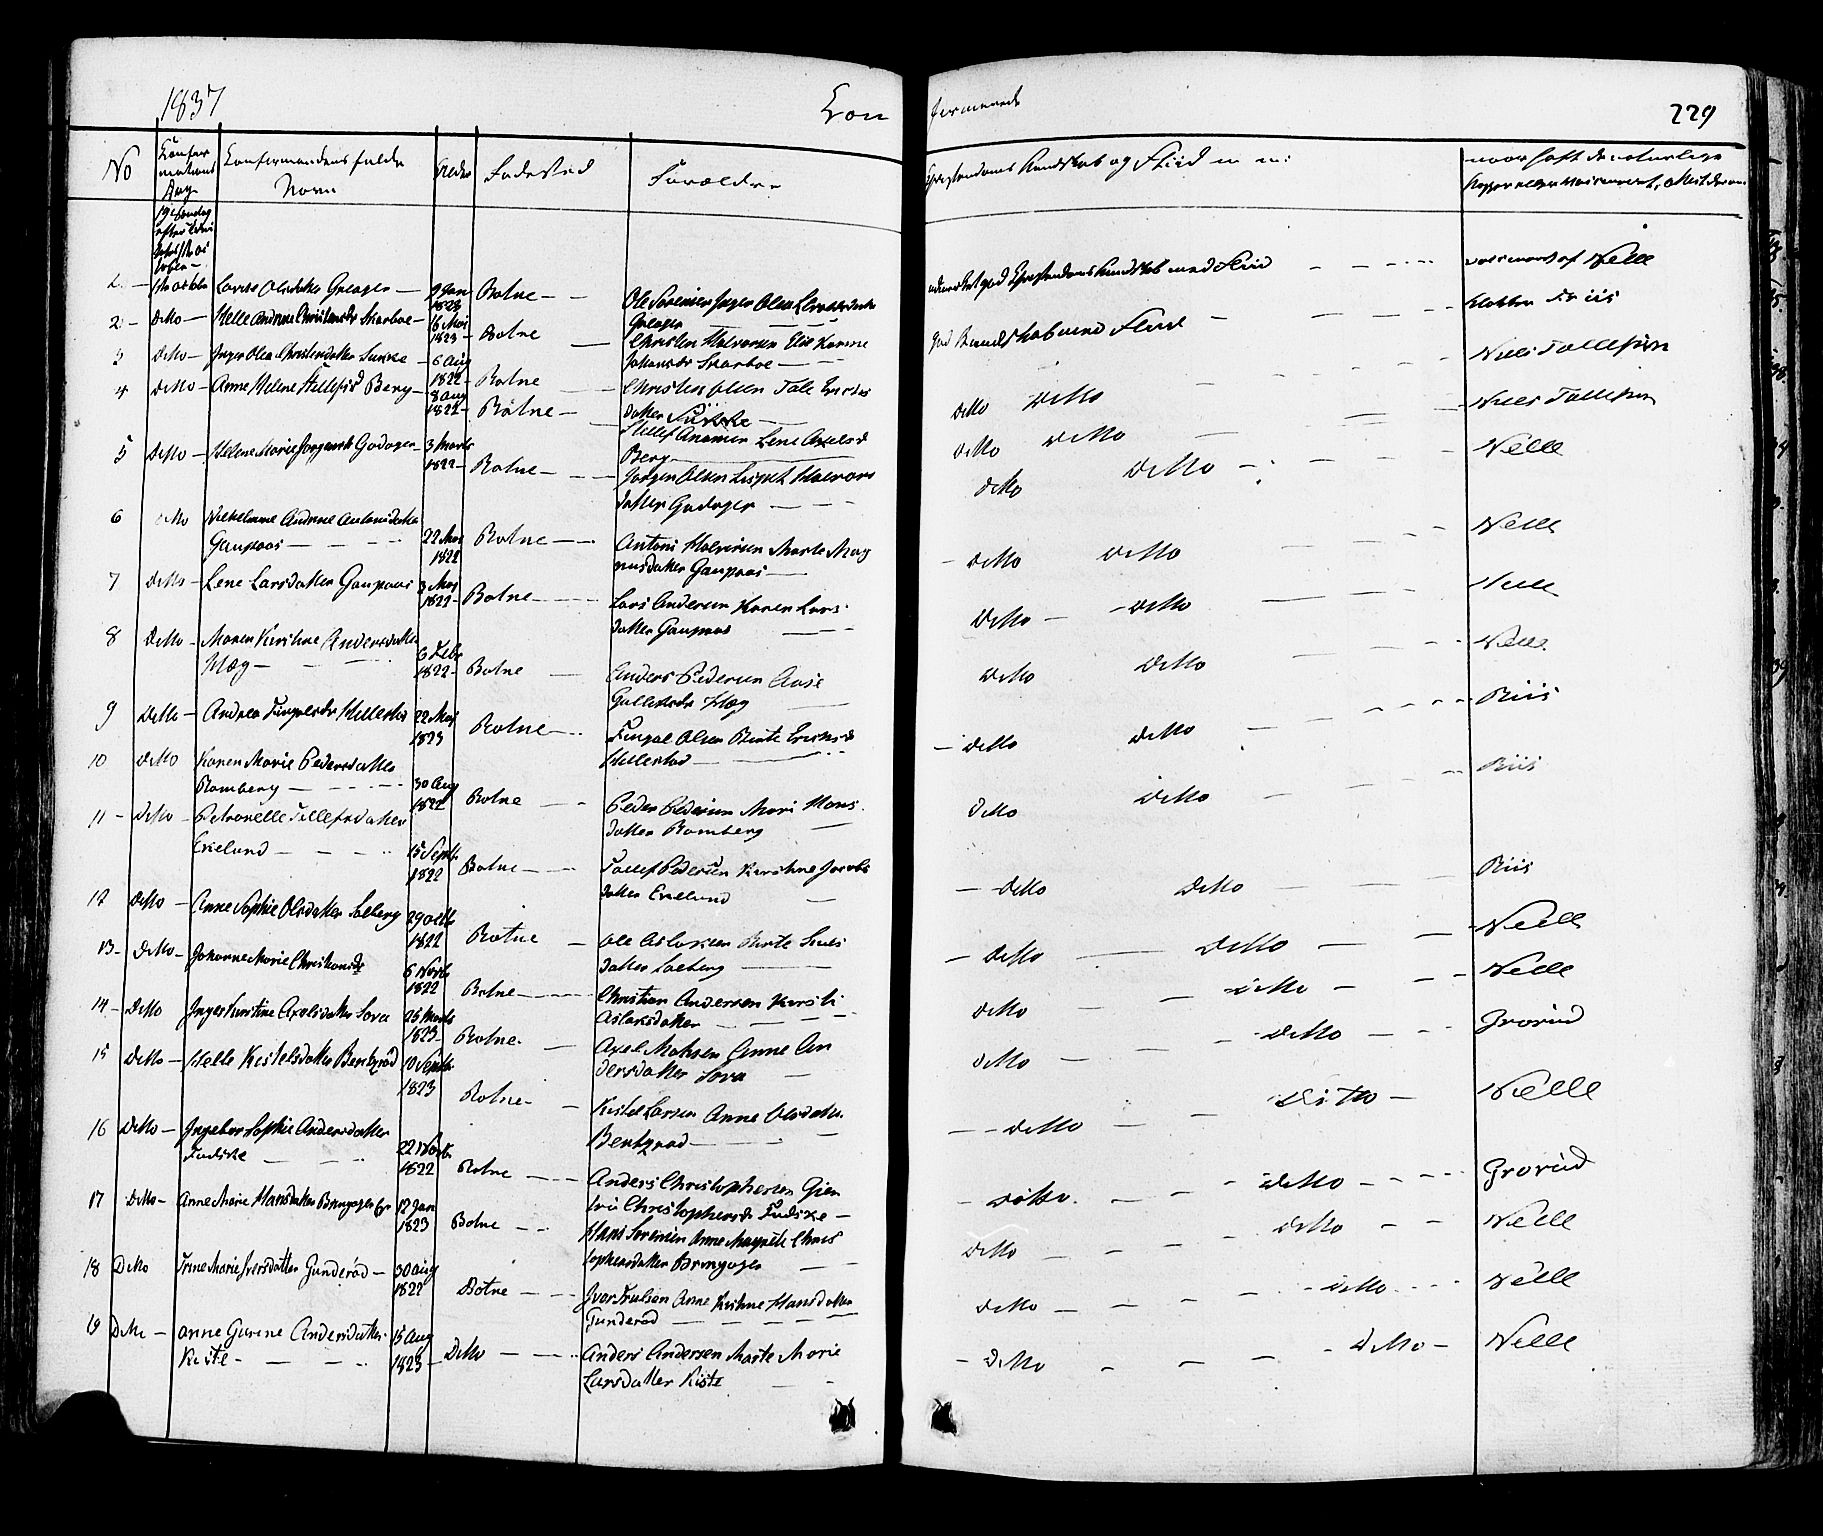 1837
Con
firmerede
229
No
Confirmandens fulde
Navn
Alder
Fødested
Forældre
Christendoms Kundskab og Fliid m m:
19de Søndag
1 - Octbr Olsdatter Greager — 9 Jan 1823 Botne — — Ole Sørensen Inger Olea
Greager
udmærket god Christendoms Kundskab med Fliid — — — vaccineret af Welle
2 - Ditto - Helle Andrine Christensdr Skarboe - 16 Mai 1823 - Botne — Christen Halvorsen Else Karine
Johansdr Skarboe —
god Kundskab med Fliid — — — Klokker Friis
3 Ditto - Inger Olea Christensdatter Sukke - 6 Aug 1822 - Botne — — Christen Olsen Tale Ericks
datter Sukke —
Ditto Ditto — — — Niels Tollefsen
4 Ditto - Anne Helene Hellefsd Berg - 8 Aug 1822 - Botne — Hellef Lene Axelsd
Berg
Ditto Ditto — — — Niels Tollefsen
5 Ditto - Helene Marie Jørgensd Gadager - 3 Marts 1822 - Botne — — Jørgen Olsen Halvors
datter Gadager — — —
Ditto Ditto — — — Welle
6 Ditto Vilhelmine Andrine Antonsdatter
Gaupaas — — — 22 Mai 1822 Botne — — Antoni Halvorsen Marte Mag
nusdatter Gaupaas —
— Ditto Ditto — Welle
7 Ditto - Lene Larsdatter Gaupaas 3 Mai 1822 - Botne — — Lars Andersen Karen Lars
datter Gaupaas —
Ditto — — Ditto — — Welle
8 Ditto - Maren Kirstine Andersdatter
Hæg — — 6 Febr 1822 - Botne — Anders Pedersen Aase
Gullichsdr Hæg —
Ditto Ditto — — Welle
9 Ditto - Andrea Fingalsdr Hillestad 22 Mai 1823 Botne — Fingal Olsen Birte Ericksd
Hillestad —
— Ditto Ditto — — — Riis
10 Ditto Karen Marie Pedersdatter
Ramberg — — — 30 Aug 1822 Botne — — Peder Pedersen Mari Hans
datter Ramberg —
Ditto Ditto — — Riis
11 - Ditto - Petronelle Tollefsdatter
Eikelund — — — 15 Septbr 1822 Botne — — Tollef Pedersen Kirstine Jacobs
datter Eikelund —
— Ditto Ditto — — — Riis
12 Ditto - Anne Sophie Olsdatter Solberg 29 Octbr 1822 Botne — Ole Aslaksen Birte
datter Solberg —
— Ditto — Ditto — — Welle
13 - Ditto - Johanne Marie Christiansdr 6 Novbr 1822 Botne — — Christian Andersen Kirsti
Aslaksdatter — — —
Ditto — — Ditto — — Welle
14 - Ditto Inger Kirstine Axelsdatter Sora 26 Marts 1823 - Botne — Axel Madsen Anne An
dersdatter Sora —
Ditto — — Ditto — — Grorud
15 Ditto - Helle Kistelsdatter Bentsrød 10 Septbr 1823 Botne - — Kistel Larsen Anne Olsdatter
Bentsrød — —
— — Ditto — — Ditto — Welle
16 Ditto - Ingeborg Sophie Andersdatter
Fadske — — 22 Novbr 1822 Botne — — Anders Christophersen
Christophersdr Fadske —
— Ditto. — — Ditto — — Grorud
17 Ditto - Anne Marie Hansdatter 12 Jan 1823 Botne — — Hans Sørensen Anne Margrete Chris
tophersdatter
Ditto — — Ditto — — Welle
18 Ditto Trine Marie Iversdatter Gunderød — 30 Aug 1822 Botne — — Iver Trulsen Anne Kirstine Hansdatter
Gunderød — — —
Ditto — — Ditto — — Welle
19 Ditto — Anne Gurine Andersdatter
Kiste - — — 15 Aug 1823 - Ditto — — Anders Andersen Marte Marie
Larsdatter Kiste —
— Ditto — — — Ditto — Welle